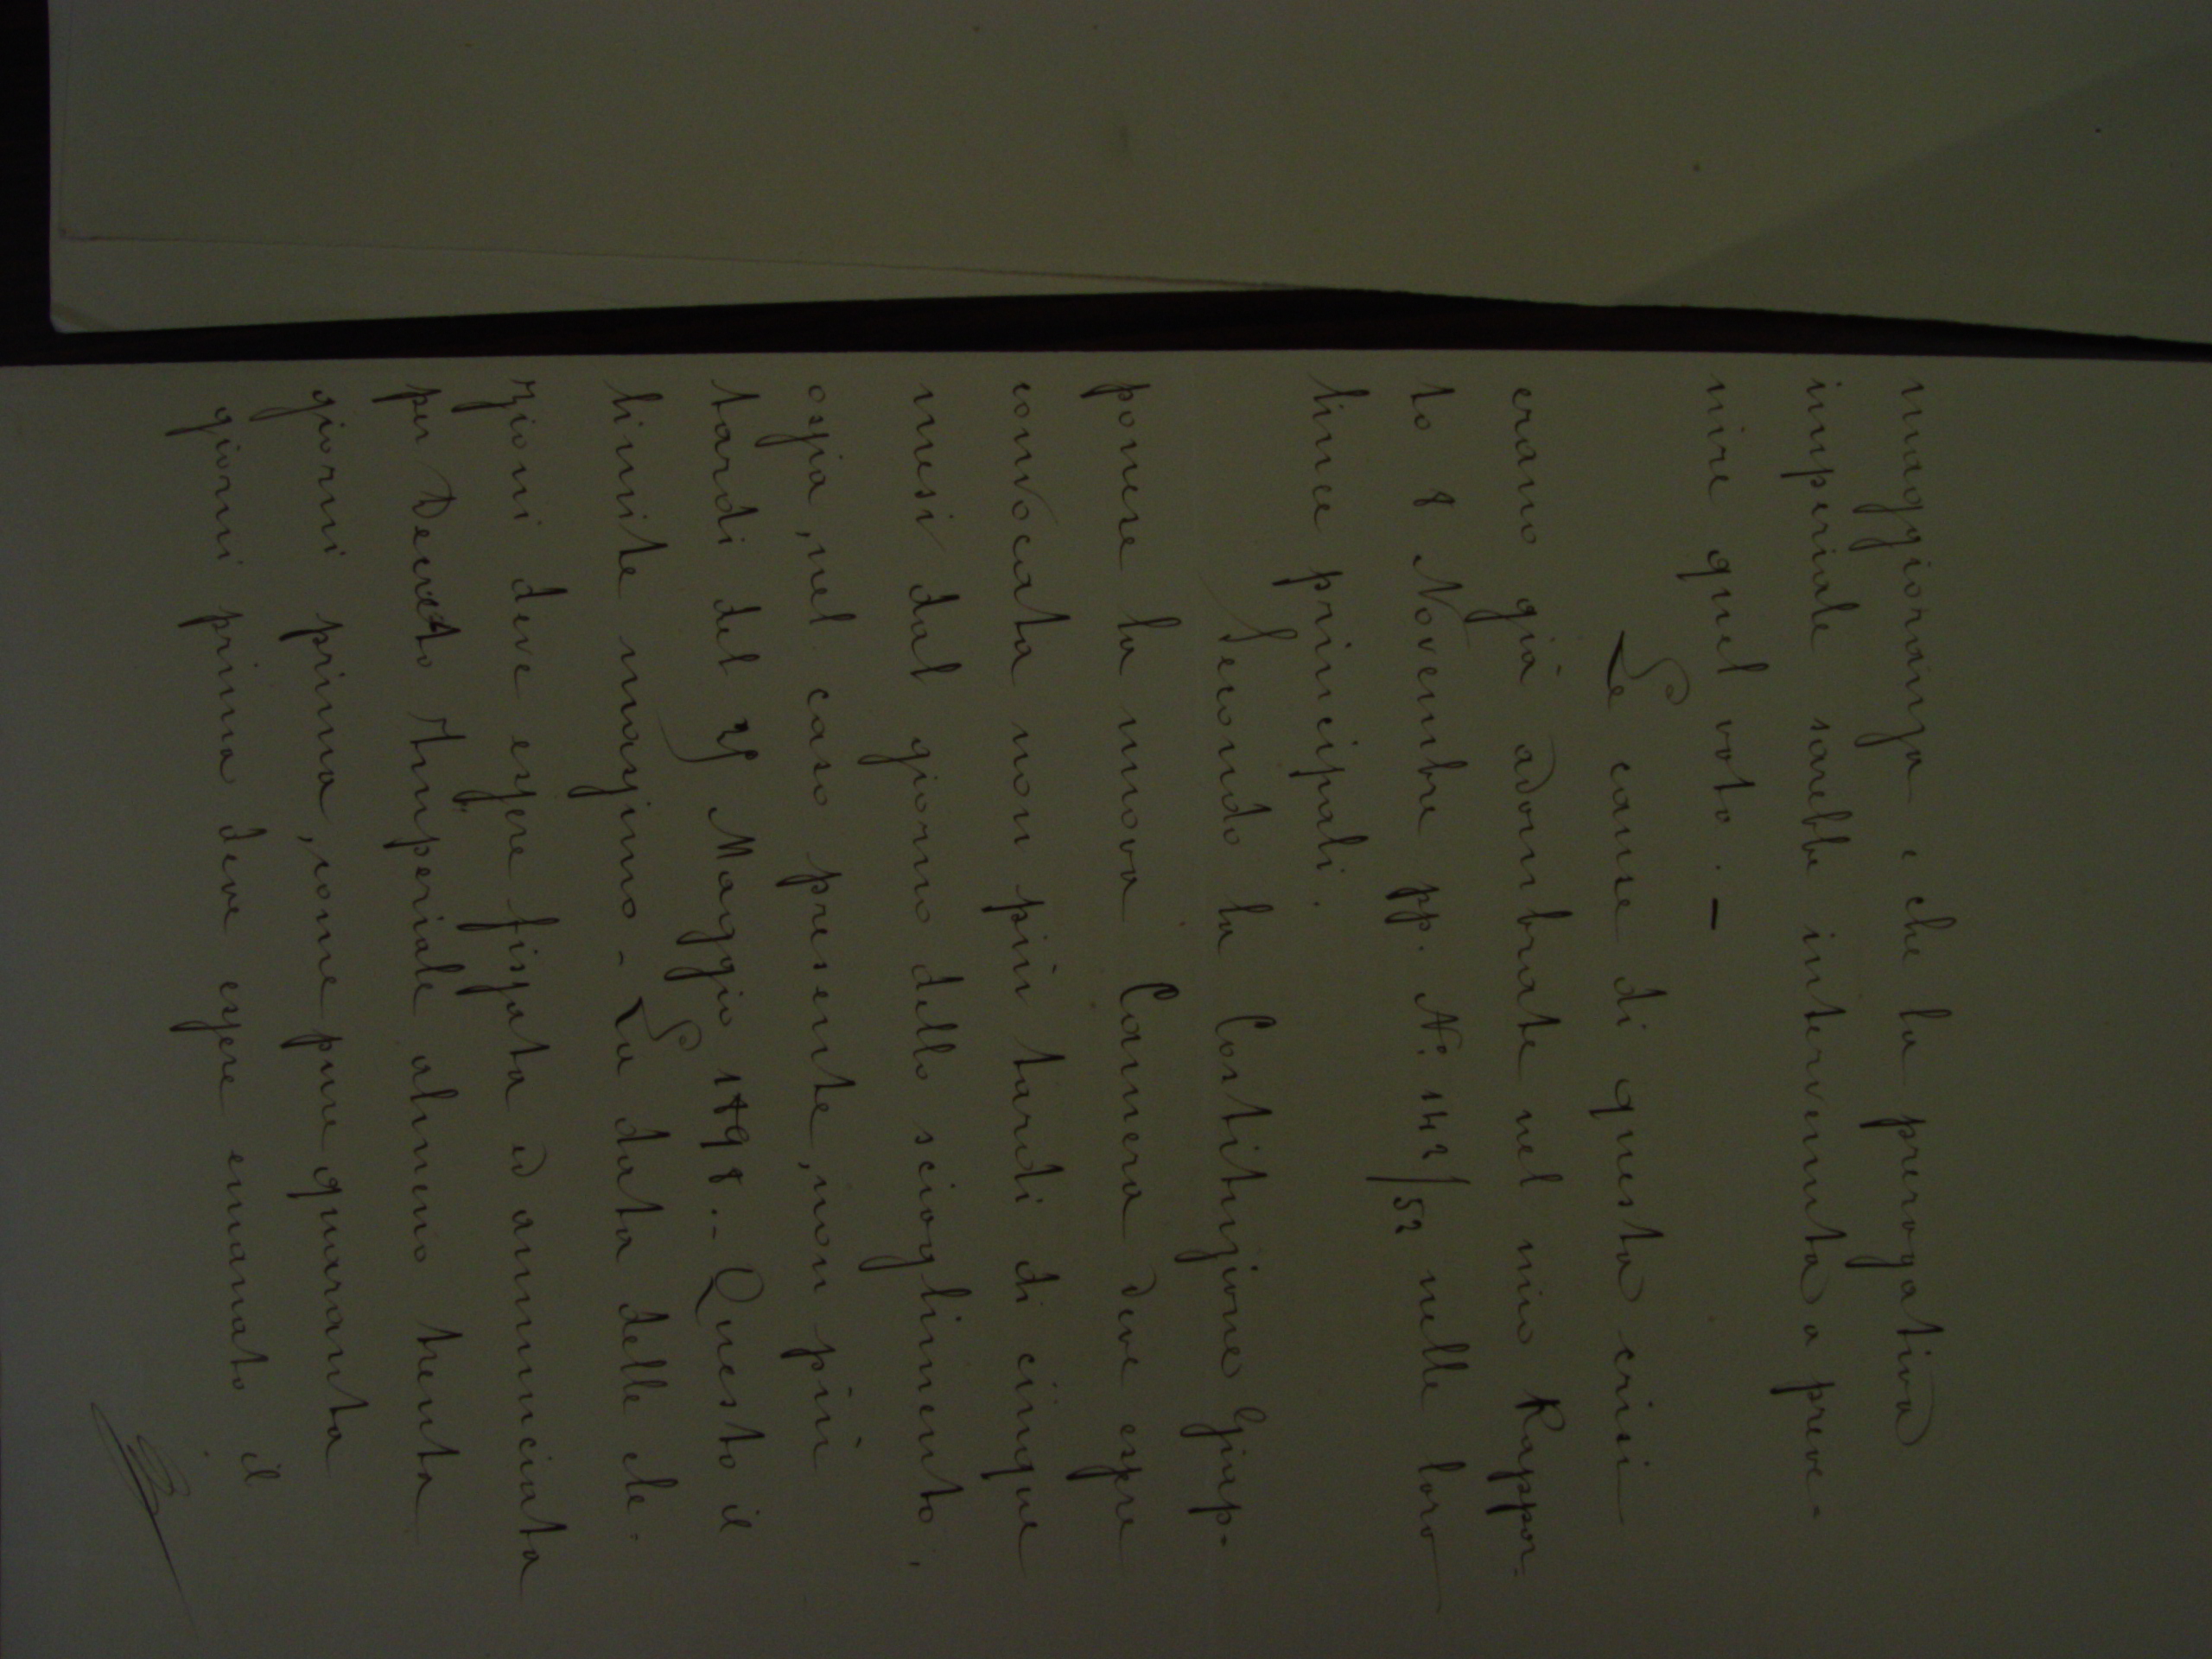 maggioranza e che la prerogativa
imperiale sarebbe intervenuta a preve-
nire quel voto. –
Le cause di questa crisi
erano già adombrate nel mio Rappor-
to 8 Novembre pp. N° 142/52 nelle loro
linee principali.
Secondo la Costituzione Giap-
ponese la nuova Camera deve essere
convocata non più tardi di cinque
mesi dal giorno dello scioglimento,
ossia, nel caso presente, non più
tardi del 25 Maggio 1898. – Questo il
limite massimo – La data delle ele-
zioni deve essere fissata ed annunciata
per Decreto Imperiale almeno trenta
giorni prima, come pure quaranta
giorni prima deve essere emanato il